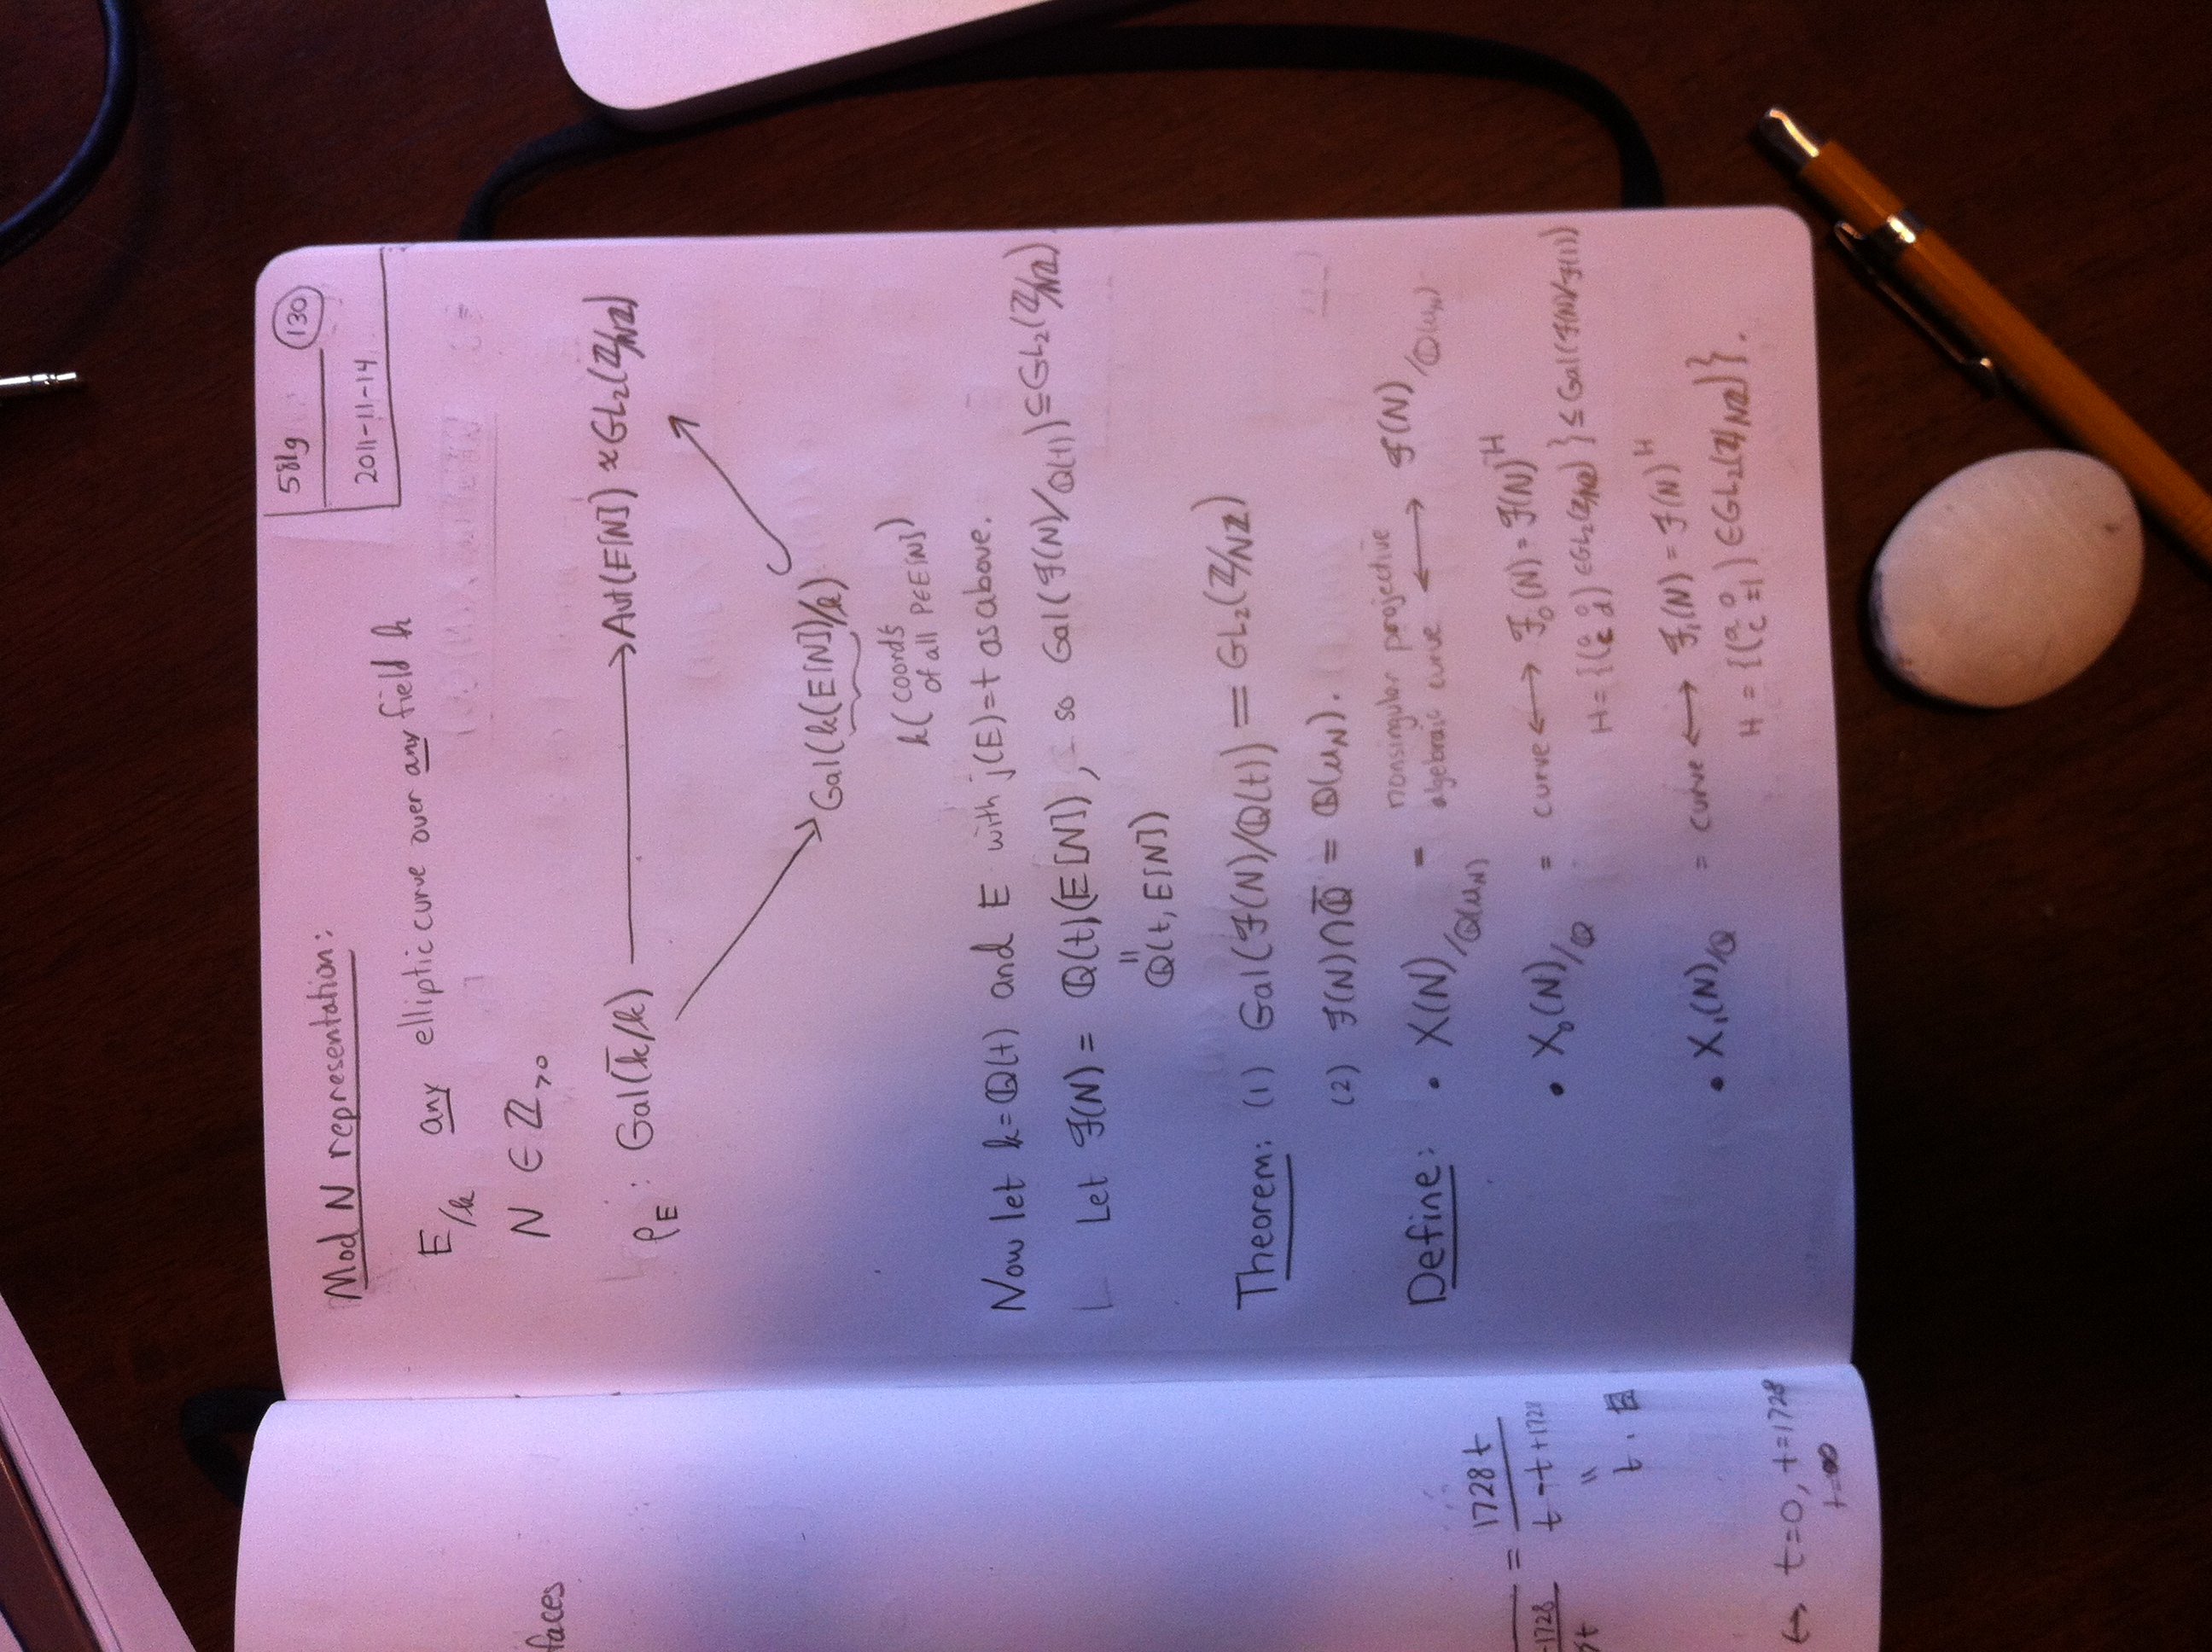 faces
= 1728t
-1728 t-t+1728
"
t.
↔ t=0, t=1728
t=∞
581g (130)
2011-11-14
Mod N representation:
E/k any elliptic curve over any field k
N ∈ ℤ>0
ρ_E : Gal(k̄/k) ⟶ Aut(E[N]) ≈ GL₂(ℤ/Nℤ)
Gal(k(E[N])/k)
k(coords of all P∈E[N])
Now let k=ℚ(t) and E with j(E)=t as above.
Let ℱ(N) = ℚ(t)(E[N]), so Gal(ℱ(N)/ℚ(t)) ⊆ GL₂(ℤ/Nℤ)
"
ℚ(t, E[N])
Theorem: (1) Gal(ℱ(N)/ℚ(t)) = GL₂(ℤ/Nℤ)
(2) ℱ(N)∩ℚ̄ = ℚ(μ_N).
Define: • X(N)/ℚ(μ_N) = nonsingular projective algebraic curve ⟷ ℱ(N)/ℚ(μ_N)
• X₀(N)/ℚ = curve ⟷ ℱ₀(N) = ℱ(N)^H
H = {(a 0; c d) ∈ GL₂(ℤ/Nℤ)} ≤ Gal(ℱ(N)/ℱ(1))
• X₁(N)/ℚ = curve ⟷ ℱ₁(N) = ℱ(N)^H
H = {(a 0; c ±1) ∈ GL₂(ℤ/Nℤ)}.